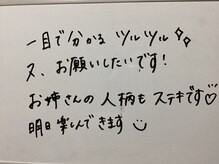 一目で分かる ツルツル✨
又、お願いしたいです!
お姉さんの人柄もステキです♡
明日楽しんできます ☺